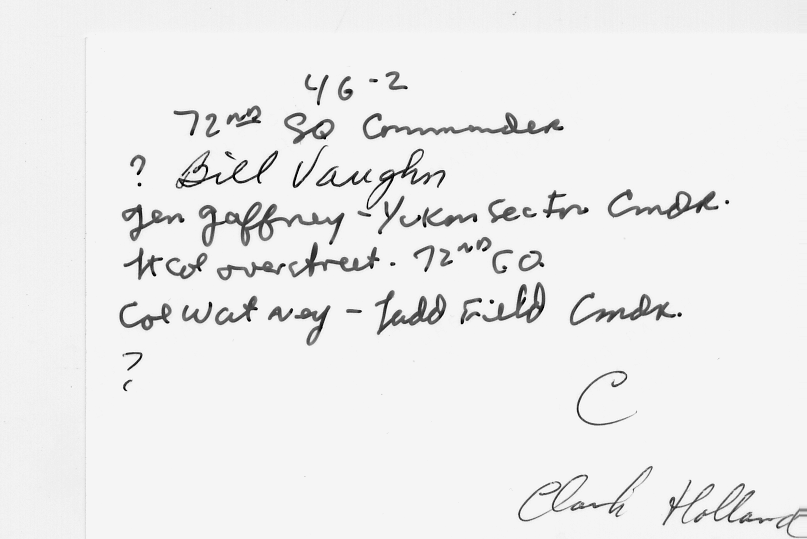 46-2
72ND SQ Commander
? Bill Vaughn
gen gaffney - Yukon Sector Cmdr.
lt col overstreet. 72ND CO.
Col Watney - Ladd Field Cmdr.
?
C
Clark Holland